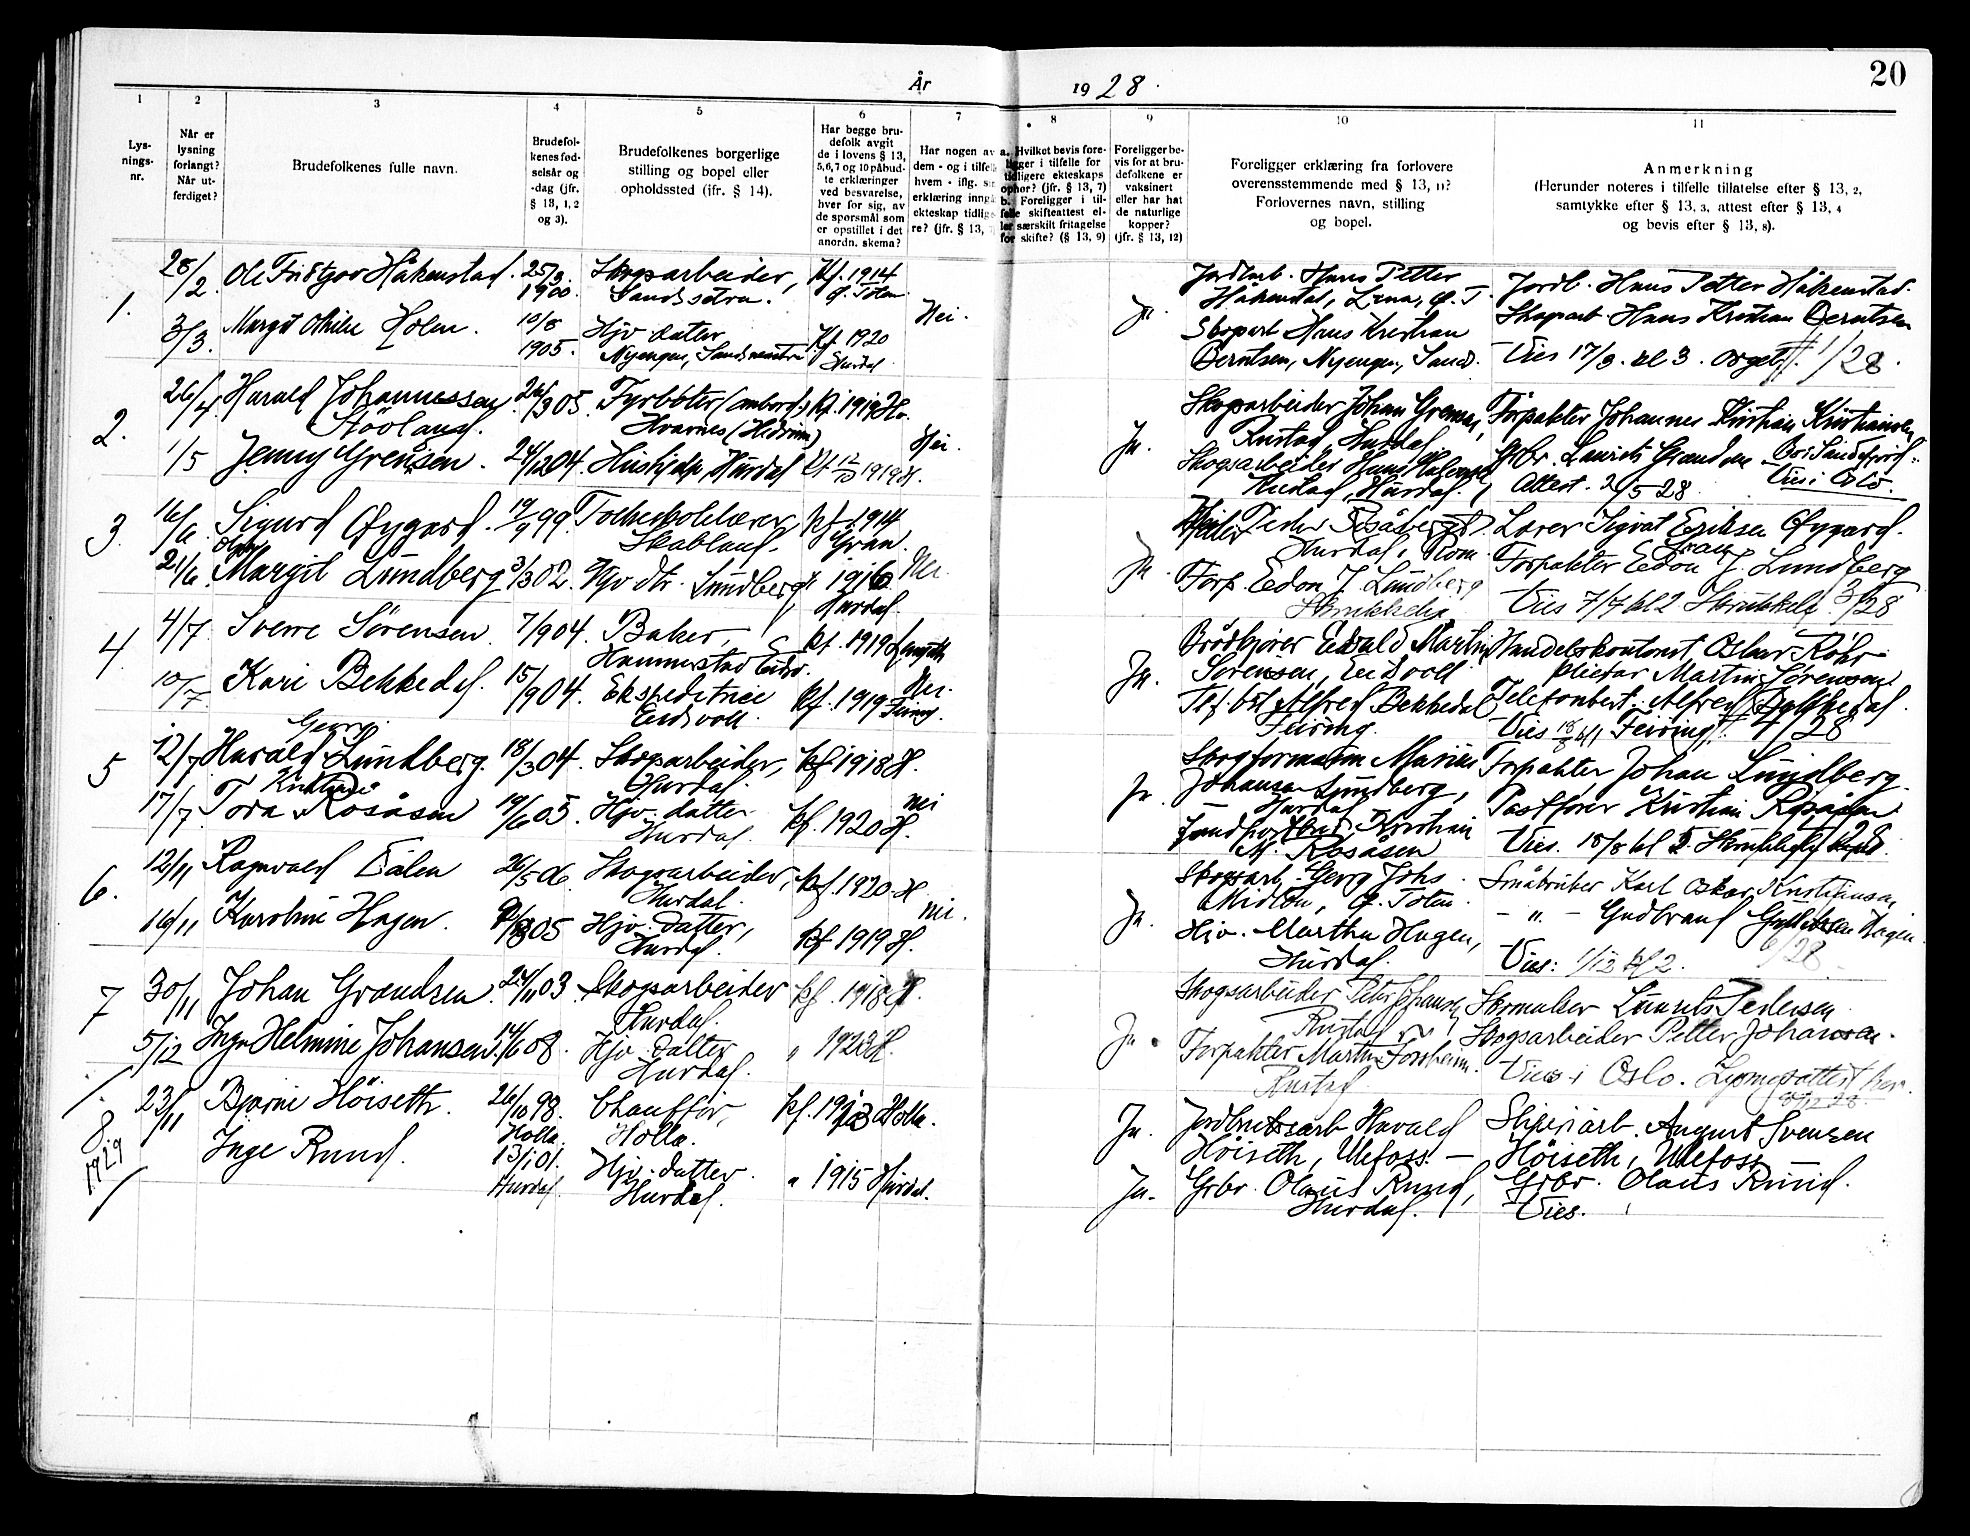 20
År 1928.
1 2 3 4 5 6 7 8 9 10 11
Lys-
nings-
nr.
Når er
lysning
forlangt?
Når ut-
ferdiget?
Brudefolkenes fulle navn.
Brudefol-
kenes fød-
selsår og
-dag (jfr.
§ 13, 1, 2
og 3).
Brudefolkenes borgerlige
stilling og bopel eller
opholdssted (jfr. § 14).
Har begge bru-
defolk avgit
de i lovens § 13,
5, 6, 7 og 10 påbud-
te erklæringer
ved besvarelse,
hver for sig, av
de spørsmål som
er opstillet i det
anordn. skema?
Har nogen av
dem - og i tilfelle
hvem - iflg. sin
erklæring inngått
ekteskap tidlige-
re? (jfr. § 13,
a. Hvilket bevis fore-
ligger i tilfelle for
tidligere ekteskaps
ophør? (jfr. § 13, 7)
b. Foreligger i til-
felle skifteattest el-
ler særskilt fritagelse
for skifte? (§ 13, 9)
Foreligger be-
vis for at bru-
defolkene er
vaksinert
eller har hat
de naturlige
kopper?
(jfr. § 13, 12)
Foreligger erklæring fra forlovere
overensstemmende med § 13, 11?
Forlovernes navn, stilling
og bopel.
Anmerkning
(Herunder noteres i tilfelle tillatelse efter § 13, 2,
samtykke efter § 13, 3, attest efter § 13, 4
og bevis efter § 13, 8).
1.
28/2 Ole Håkenstad. 25/3 1900 Skogsarbeider, Kf. 1914
Ø. Toten
3/3. Margit Holm. 10/8 1905. Hjv. datter Kf 1920
Hurdal
Nei.
Ja.
Jordarb. Hans Petter
Håkenstad, Lena, Ø. T.
Skogarb Hans Kristian
Berntsen, Nyengen, Sand.
Jordb. Hans Petter Håkenstad.
Skogarb. Hans Kristian Berntsen
Vies 17/3. kl 3. 1/28.
2.
26/4 Harald Johannessen 26/3 05. Fyrbøter Kf. 1919
Støvland. Hvarnes (Hedrum)
1/5 Jenny Grensen. 24/12 04. Hurdal Kf 1919 H.
Nei.
Ja.
Skogarbeider Johan Grensen,
Rustad, Hurdal
Skogsarbeider Hans
Rustad, Hurdal.
Forpakter Johannes Kristian Kristiansen
Grbr. Laurits Grændsen Bor: Sandefjord
Attest. 2/5 28. Vies i Oslo.
3.
16/6 Sigurd Øygard. 19/9 99. Folkeskolelærer Kf. 1914
Gran.
21/6 Margit Lundberg 3/3 02. Hjv dtr. Lundberg, " 1916
Hurdal.
Nei.
Ja.
Peder Rosåberget
Hurdal.
Forp. Edon J. Lundberg
Skrukkelia
Lærer Sigvat Eriksen Øygard.
Gran
Forpakter Edon J. Lundberg
Vies 7/7 kl 2 Skrukkeli 3/28
4.
4/7 Sverre Sørensen. 7/9 04. Baker, Kf. 1919
Hammerstad Eidsv.
10/7 Kari Bekkedal. 15/9 04. Ekspeditrice Kf. 1919 Feiring.
Eidsvoll.
Nei.
Ja.
Brødkjører Edvald Martin
Sørensen, Eidsvoll
Alfred Bekkedal
Feiring.
Handelskontorist Oskar Röhr
Martin Sørensen
Alfred Bekkedal.
Vies 18/8 kl 1 Feiring. 4/28
5
Georg
12/7 Harald Lundberg. 18/3 04. Skogarbeider, Kf 1918 H.
Hurdal.
17/7. Tora Rosåsen 19/6 05. Hjv. datter Kf. 1920 H.
Hurdal.
nei
Ja.
Skogformann Marius
Johansen Lundberg,
Hurdal
Landpostbud Kristian
M. Rosåsen
Forpakter Johan Lundberg.
Postfører Kristian Rosåsen
Vies. 18/8 kl 2.
6.
12/11 Ragnvald Dålen 26/5 06. Skogsarbeider, Kf. 1920 H
Hurdal.
16/11 Karoline Hagen. 05 Hjv. datter, Kf 1919 H.
Hurdal.
nei.
Ja.
Skogsarb. Georg Johs.
Ø. Toten.
Hjv. Martha Hagen,
Hurdal.
Småbruker Karl Oskar Kristiansen
- " - Gudbrand Hagen.
Vies: 1/12 kl 2. 6/28.
7
30/11 Johan Grændsen. 24/11 03 Skogsarbeider Kf. 1918 H.
Hurdal.
5/12 Inga Helmine Johansen. 14/6 08. Hjv. datter " 1923 H.
Hurdal.
Ja.
Skogsarbeider Peter Johansen
Rustad
Forpakter Martin Forsheim.
Rustad
Skomaker Laurits Pedersen
Skogsarbeider Petter Johansen.
Vies i Oslo. Lysningsattest her.
8
1929
23/11 Bjarne Höiseth. 26/10 98. Chauffør, Kf. 1913 Holla.
Holla. Holla.
Inga Ruud. 13/1 01. Hjv. datter " 1915 Hurdal.
Hurdal Hurdal.
Ja.
Jordbruksarb Harald
Höiseth, Ulefoss. —
Ja.
Grbr. Olaus Ruud,
Hurdal.
Sliperiarb. August Svensen
Höiseth, Ulefoss
Grbr. Olaus Ruud.
Vies.